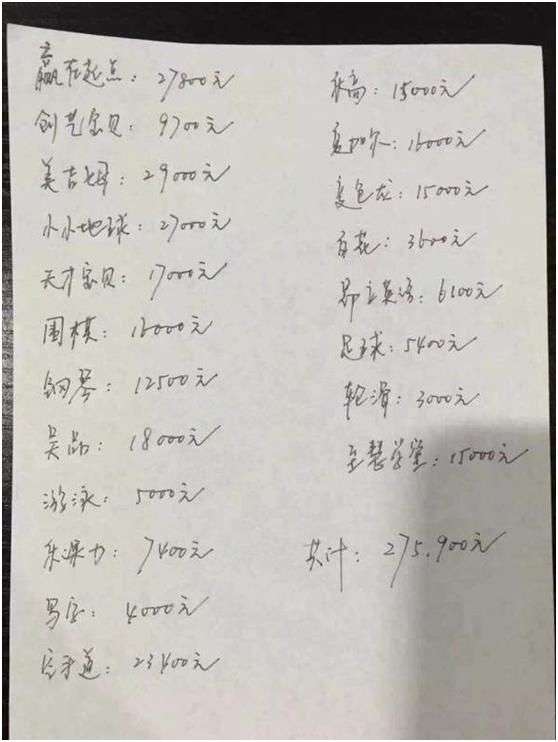 赢在起点：27800元
创艺宝贝：9700元
美吉姆：29000元
小小地球：27000元
天才宝贝：17000元
围棋：16000元
钢琴：12500元
昊品：18000元
游泳：5000元
乐课力：7400元
写字：4000元
空手道：23400元
乐高：15000元
夏加尔：16000元
变色龙：15000元
百花：3600元
昂立英语：6100元
足球：5400元
轮滑：3000元
至慧学堂：15000元
共计：275.900元